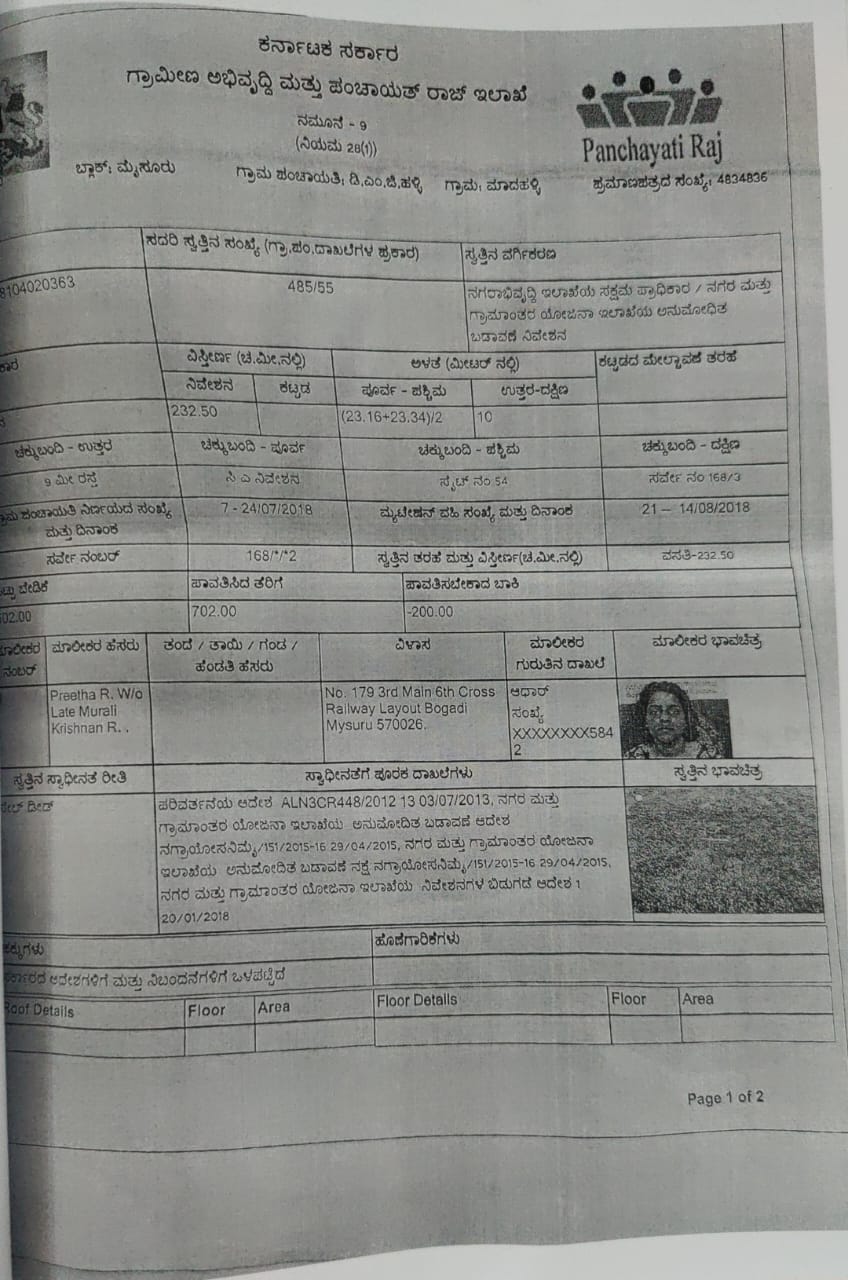 ಕರ್ನಾಟಕ ಸರ್ಕಾರ
ಗ್ರಾಮೀಣ ಅಭಿವೃದ್ಧಿ ಮತ್ತು ಪಂಚಾಯತ್ ರಾಜ್ ಇಲಾಖೆ
ನಮೂನೆ - 9
(ನಿಯಮ 28(1))
Panchayati Raj
ಬ್ಲಾಕ್: ಮೈಸೂರು ಗ್ರಾಮ ಪಂಚಾಯತಿ: ಡಿ.ಎಂ.ಜಿ.ಹಳ್ಳಿ ಗ್ರಾಮ: ಮಾದಹಳ್ಳಿ ಪ್ರಮಾಣಪತ್ರದ ಸಂಖ್ಯೆ: 4834836
ಸದರಿ ಸ್ವತ್ತಿನ ಸಂಖ್ಯೆ (ಗ್ರಾ.ಪಂ.ದಾಖಲೆಗಳ ಪ್ರಕಾರ) ಸ್ವತ್ತಿನ ವರ್ಗಿಕರಣ
8104020363 485/55 ನಗರಾಭಿವೃದ್ಧಿ ಇಲಾಖೆಯ ಸಕ್ಷಮ ಪ್ರಾಧಿಕಾರ / ನಗರ ಮತ್ತು
ಗ್ರಾಮಾಂತರ ಯೋಜನಾ ಇಲಾಖೆಯ ಅನುಮೋಧಿತ
ಬಡಾವಣೆ ನಿವೇಶನ
ವಿಸ್ತೀರ್ಣ (ಚ.ಮೀ.ನಲ್ಲಿ) ಅಳತೆ (ಮೀಟರ್ ನಲ್ಲಿ) ಕಟ್ಟಡದ ಮೇಲ್ಚಾವಣಿ ತರಹೆ
ನಿವೇಶನ ಕಟ್ಟಡ ಪೂರ್ವ - ಪಶ್ಚಿಮ ಉತ್ತರ-ದಕ್ಷಿಣ
232.50 (23.16+23.34)/2 10
ಚಕ್ಕುಬಂದಿ - ಉತ್ತರ ಚಕ್ಕುಬಂದಿ - ಪೂರ್ವ ಚಕ್ಕುಬಂದಿ - ಪಶ್ಚಿಮ ಚಕ್ಕುಬಂದಿ - ದಕ್ಷಿಣ
9 ಮೀ ರಸ್ತೆ ಸಿ ಎ ನಿವೇಶನ ಸೈಟ್ ನಂ 54 ಸರ್ವೇ ನಂ 168/3
ಪಂಚಾಯತಿ ನಿರ್ಣಯದ ಸಂಖ್ಯೆ 7 - 24/07/2018 ಮ್ಯುಟೇಶನ್ ವಹಿ ಸಂಖ್ಯೆ ಮತ್ತು ದಿನಾಂಕ 21 – 14/08/2018
ಮತ್ತು ದಿನಾಂಕ
ಸರ್ವೆ ನಂಬರ್ 168/*/*2 ಸ್ವತ್ತಿನ ತರಹೆ ಮತ್ತು ವಿಸ್ತೀರ್ಣ(ಚ.ಮೀ.ನಲ್ಲಿ) ವಸತಿ-232.50
ಬೇಡಿಕೆ ಪಾವತಿಸಿದ ತೆರಿಗೆ ಪಾವತಿಸಬೇಕಾದ ಬಾಕಿ
702.00 -200.00
ಮಾಲೀಕರ ಹೆಸರು ತಂದೆ / ತಾಯಿ / ಗಂಡ / ವಿಳಾಸ ಮಾಲೀಕರ ಮಾಲೀಕರ ಭಾವಚಿತ್ರ
ನಂಬರ್ ಹೆಂಡತಿ ಹೆಸರು ಗುರುತಿನ ದಾಖಲೆ
Preetha R. W/o No. 179 3rd Main 6th Cross ಆಧಾರ್
Late Murali Railway Layout Bogadi ಸಂಖ್ಯೆ
Krishnan R. . Mysuru 570026. XXXXXXXX584
2
ಸ್ವತ್ತಿನ ಸ್ವಾಧೀನತೆ ರೀತಿ ಸ್ವಾಧೀನತೆಗೆ ಪೂರಕ ದಾಖಲೆಗಳು ಸ್ವತ್ತಿನ ಭಾವಚಿತ್ರ
ಸೇಲ್ ಡೀಡ್ ಪರಿವರ್ತನೆಯ ಆದೇಶ ALN3CR448/2012 13 03/07/2013, ನಗರ ಮತ್ತು
ಗ್ರಾಮಾಂತರ ಯೋಜನಾ ಇಲಾಖೆಯ ಅನುಮೋದಿತ ಬಡಾವಣೆ ಆದೇಶ
ನಗ್ರಾಯೋಸನಿಮೈ/151/2015-16 29/04/2015, ನಗರ ಮತ್ತು ಗ್ರಾಮಾಂತರ ಯೋಜನಾ
ಇಲಾಖೆಯ ಅನುಮೋದಿತ ಬಡಾವಣೆ ನಕ್ಷೆ ನಗ್ರಾಯೋಸನಿಮೈ/151/2015-16 29/04/2015,
ನಗರ ಮತ್ತು ಗ್ರಾಮಾಂತರ ಯೋಜನಾ ಇಲಾಖೆಯ ನಿವೇಶನಗಳ ಬಿಡುಗಡೆ ಆದೇಶ 1
20/01/2018
ಹಕ್ಕುಗಳು ಹೊಣೆಗಾರಿಕೆಗಳು
ಸರ್ಕಾರದ ಆದೇಶಗಳಿಗೆ ಮತ್ತು ನಿಬಂದನೆಗಳಿಗೆ ಒಳಪಟ್ಟಿದೆ
Roof Details Floor Area Floor Details Floor Area
Page 1 of 2